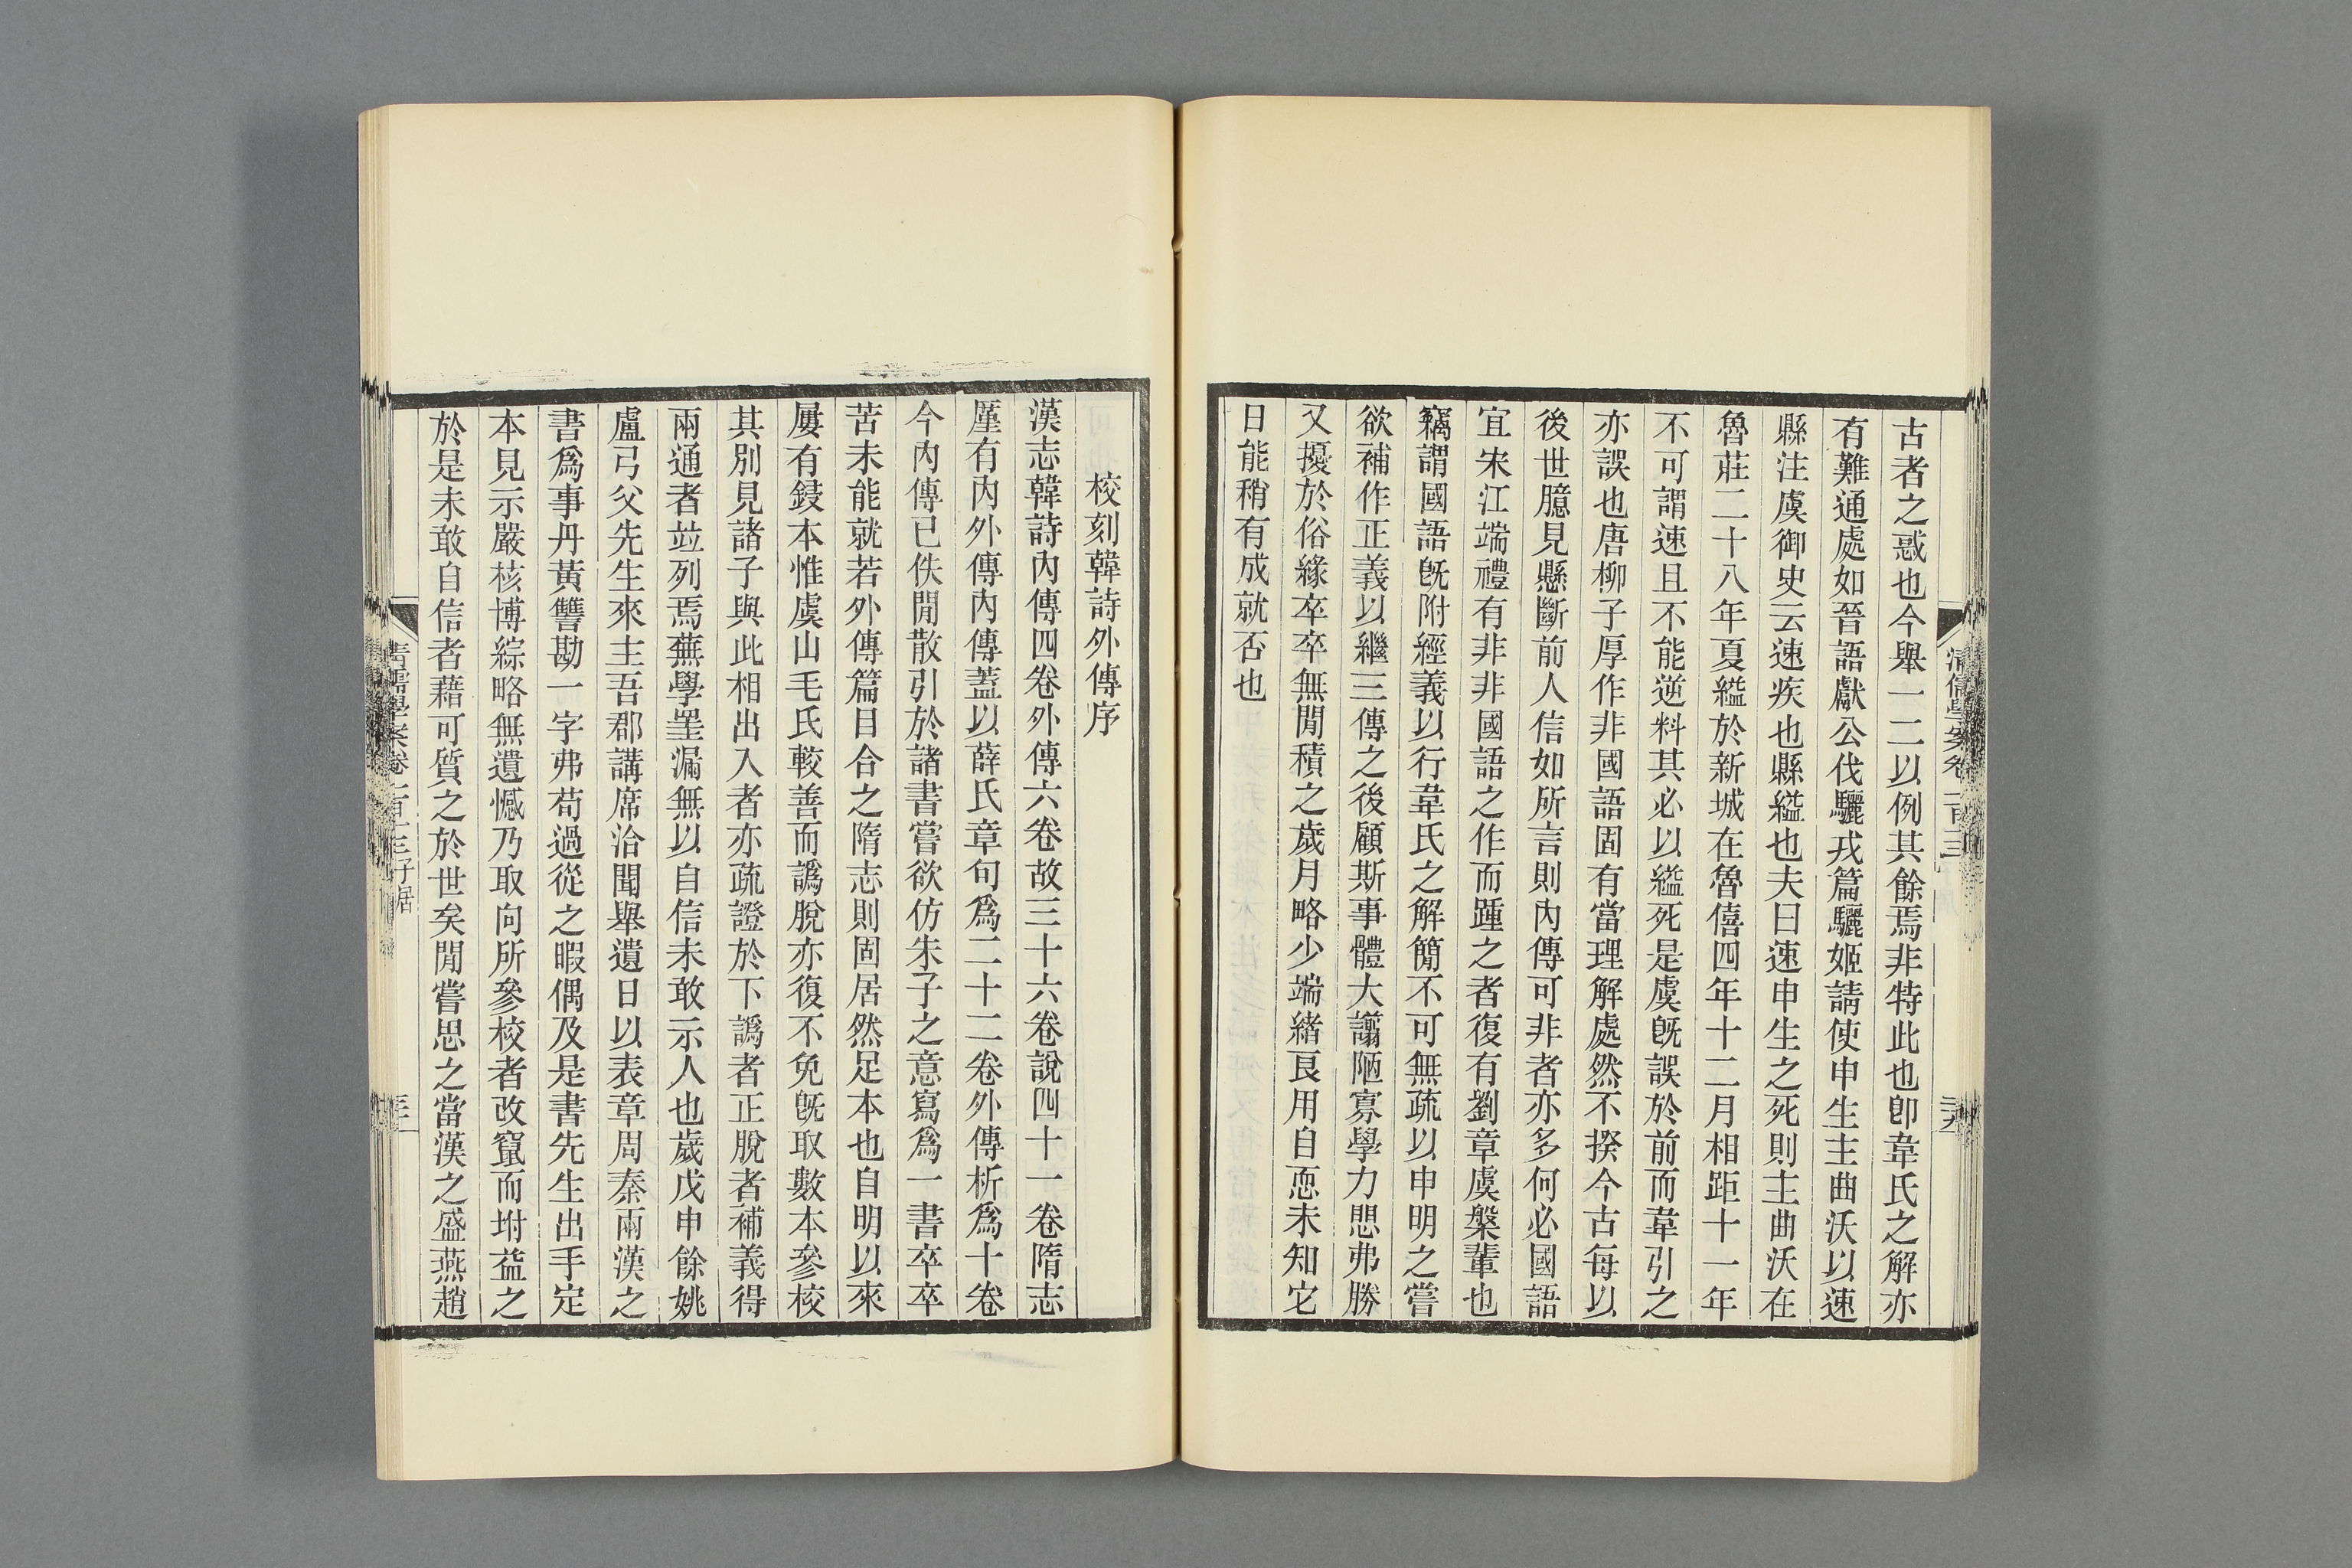 古者之惑也今舉一二以例其餘焉非特此也卽韋氏之解亦
有難通處如晉語獻公伐驪戎篇驪姬請使申生主曲沃以速
縣注虞御史云速疾也縣縊也夫曰速申生之死則主曲沃在
魯莊二十八年夏縊於新城在魯僖四年十二月相距十一年
不可謂速且不能逆料其必以縊死是虞旣誤於前而韋引之
亦誤也唐柳子厚作非國語固有當理解處然不揆今古每以
後世臆見懸斷前人信如所言則內傳可非者亦多何必國語
宜宋江端禮有非非國語之作而踵之者復有劉章虞槃輩也
竊謂國語旣附經義以行韋氏之解簡不可無疏以申明之嘗
欲補作正義以繼三傳之後顧斯事體大譾陋寡學力悤弗勝
又擾於俗緣卒卒無閒積之歲月略少端緒良用自恧未知它
日能稍有成就否也
校刻韓詩外傳序
漢志韓詩內傳四卷外傳六卷故三十六卷說四十一卷隋志
厪有內外傳內傳蓋以薛氏章句爲二十二卷外傳析爲十卷
今內傳已佚閒散引於諸書嘗欲仿朱子之意寫爲一書卒卒
苦未能就若外傳篇目合之隋志則固居然足本也自明以來
屢有鋟本惟虞山毛氏較善而譌脫亦復不免旣取數本參校
其別見諸子與此相出入者亦疏證於下譌者正脫者補義得
兩通者竝列焉蕪學罣漏無以自信未敢示人也歲戊申餘姚
盧弓父先生來主吾郡講席洽聞舉遺日以表章周秦兩漢之
書爲事丹黃讐勘一字弗苟過從之暇偶及是書先生出手定
本見示嚴核博綜略無遺憾乃取向所參校者改竄而坿益之
於是未敢自信者藉可質之於世矣閒嘗思之當漢之盛燕趙